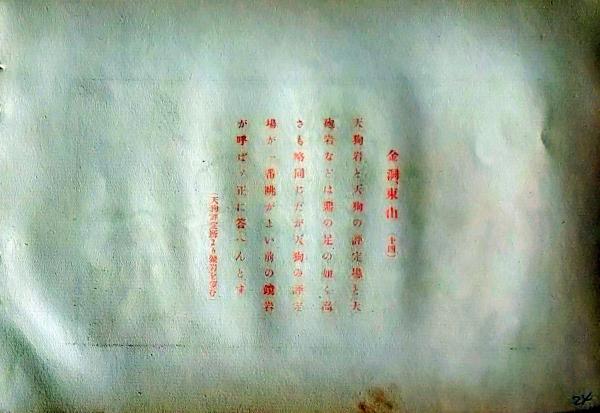 金洞、東山 (十四)
天狗岩と天狗の評定場と大
砲岩などは鼎の足の如く高
さも略同じだが天狗の評定
場が一番眺がよい前の鏡岩
が呼ばゞ正に答へんとす
(天狗評定所より鏡岩を望む)
24